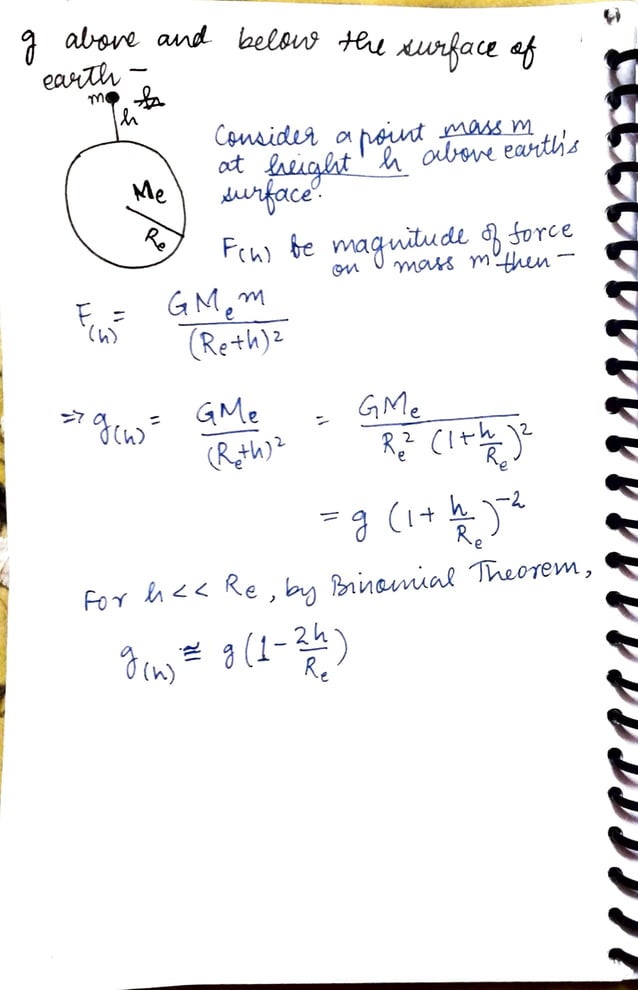 g above and below the surface of
earth –
m
h
Me
Re
Consider a point mass m
at height h above earth's
surface.
F(h) be magnitude of force
on mass m then –
F(h) = GMem / (Re+h)²
⇒ g(h) = GMe / (Re+h)² = GMe / Re² (1+h/Re)²
= g (1 + h/Re)⁻²
For h << Re, by Binomial Theorem,
g(h) ≅ g(1 - 2h/Re)